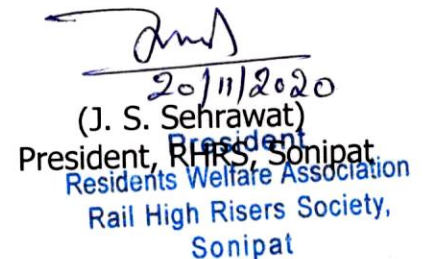 20/11/2020
(J. S. Sehrawat)
President
President, RHRS, Sonipat
Residents Welfare Association
Rail High Risers Society,
Sonipat